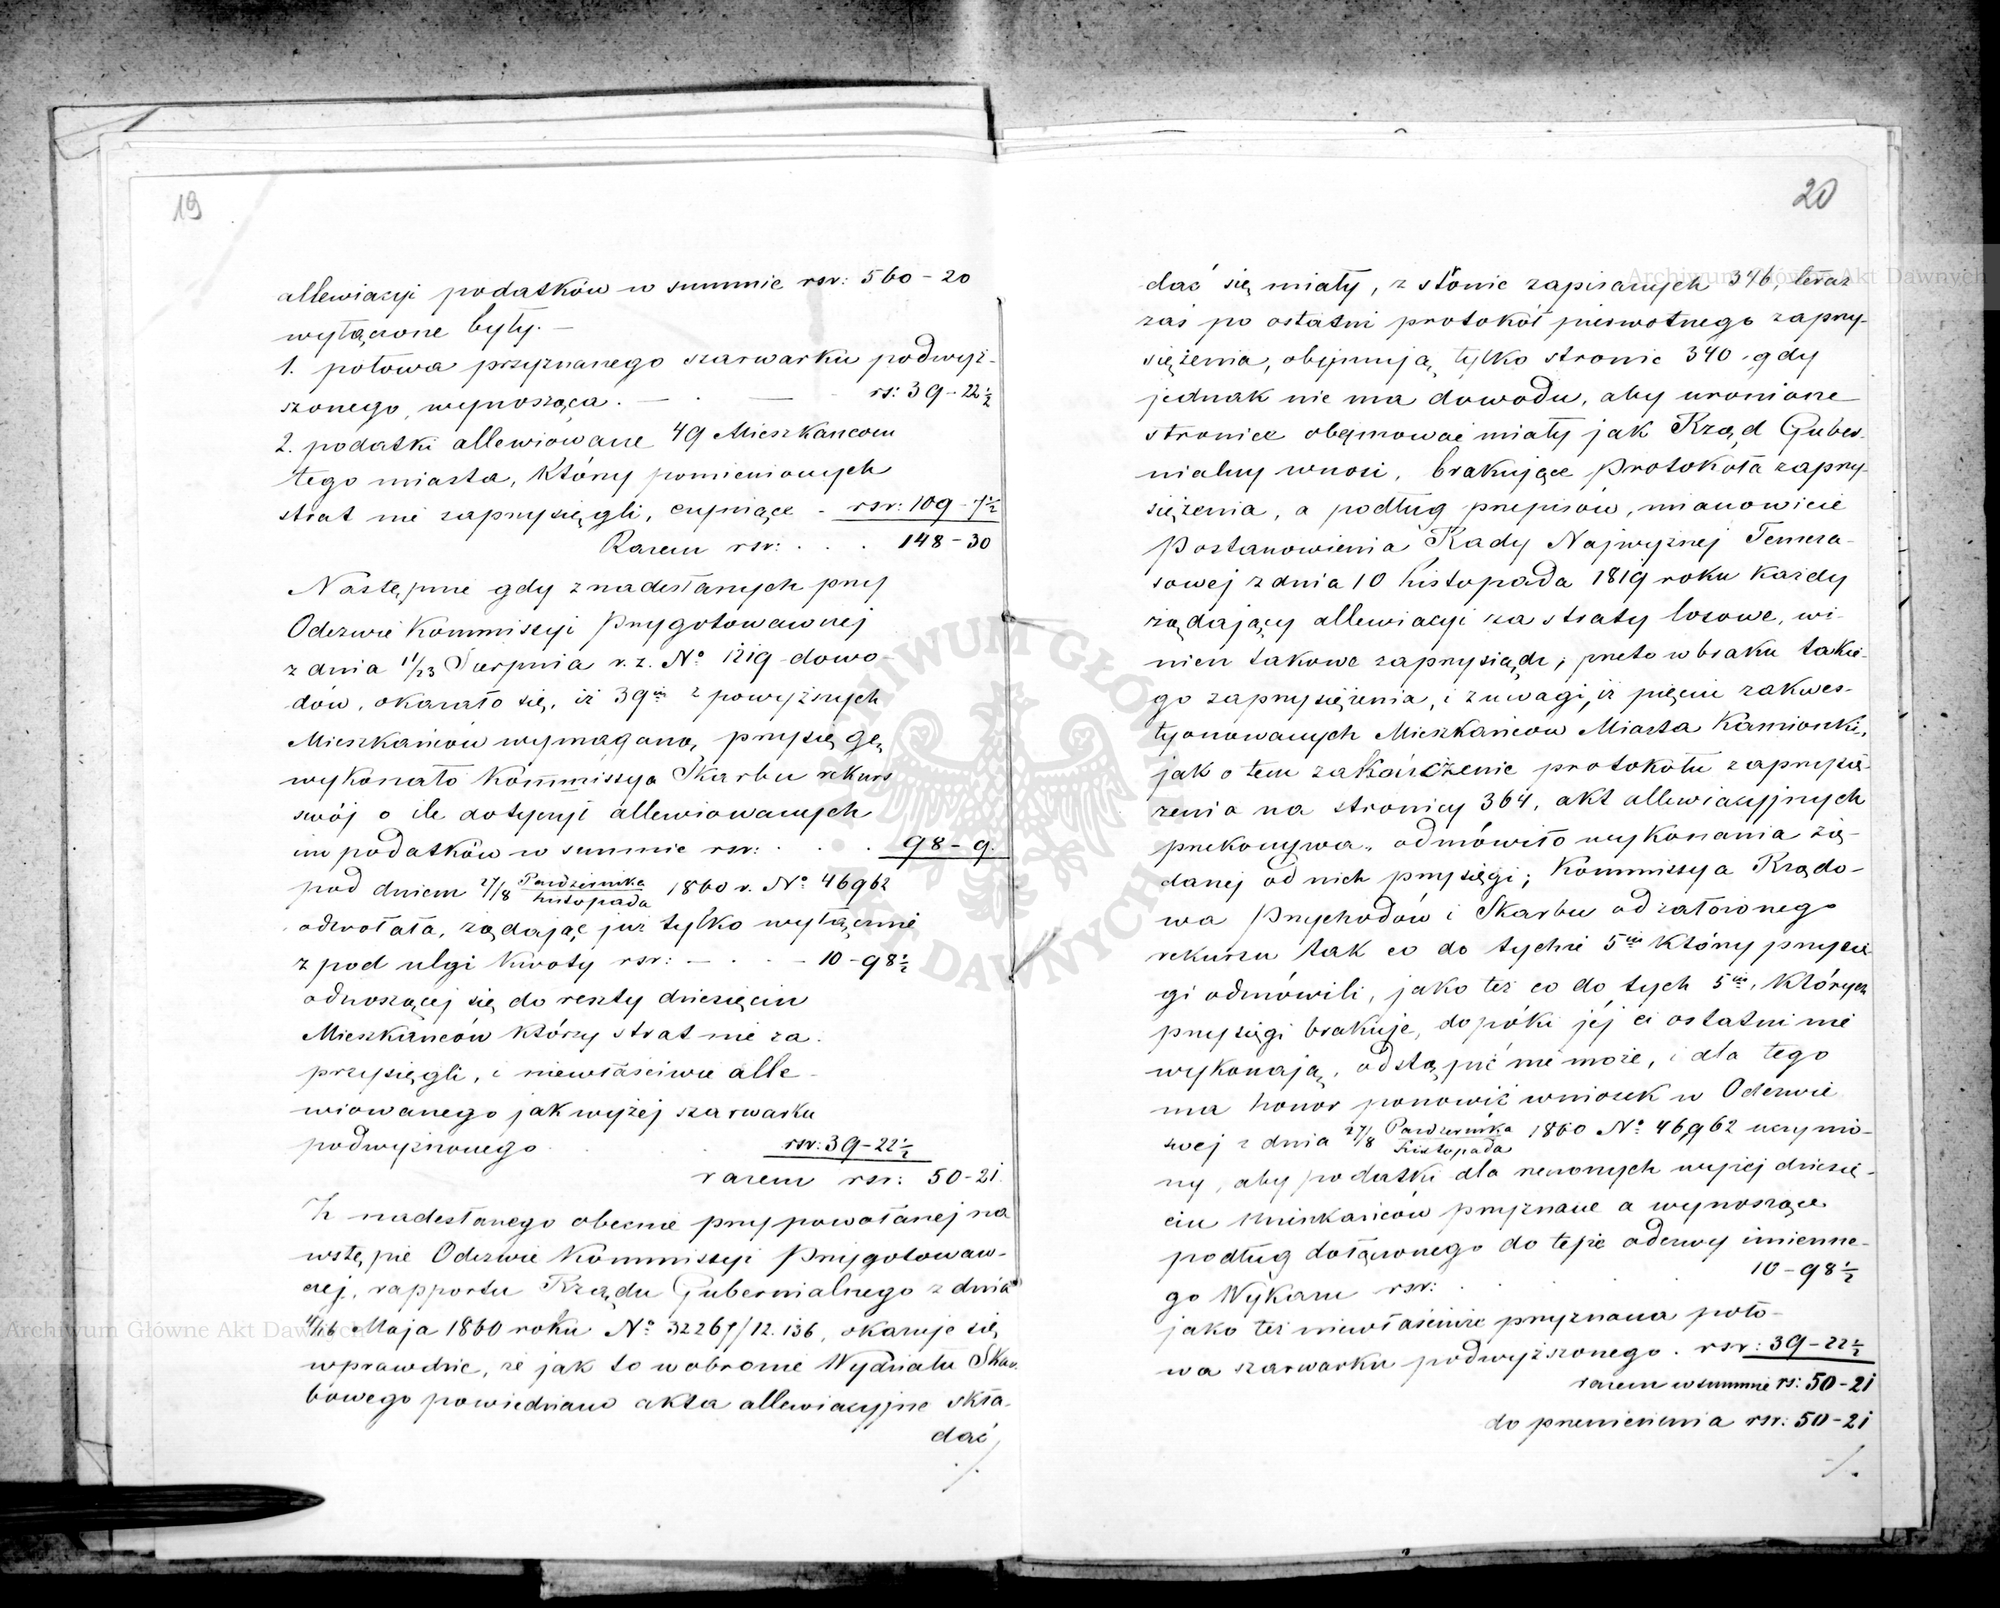 19
allewiacyi podatków w summie rsr: 560 – 20
wyłączone były. –
1. połowa przyznanego szarwarku podwyż-
szonego, wynosząca. – . – rs: 39 – 22½
2. podatki allewiowane 49 Mieszkańcom
tego miasta, którzy pomienionych
strat nie zaprzysięgli, czyniące - rsr: 109 – 7½
Razem rsr: . . . 148 – 30
Następnie gdy z nadesłanych przy
Odezwie Kommissyi Przygotowawczej
z dnia 11/23 Sierpnia r. z. No 1219 dowo-
dów, okazało się, iż 39iu z powyższych
Mieszkańców wymaganą przysięgę
wykonało Kommissya Skarbu rekurs
swój o ile dotyczył allewiowanych
im podatków w summie rsr: . . . 98 – 9.
pod dniem 27/8 Października/Listopada 1860 r. No 46962
odwołała, żądając już tylko wyłączenie
z pod ulgi kwoty rsr: – . . – 10 – 98½
odnoszącej się do reszty dziesięciu
Mieszkańców którzy strat nie za-
przysięgli, i niewłaściwie alle-
wiowanego jak wyżej szarwarku
podwyższonego . . rsr: 39 – 22½
razem rsr: 50 – 21.
Z nadesłanego obecnie przy powołanej na
wstępie Odezwie Kommissyi Przygotowaw-
czej, rapportu Rządu Gubernialnego z dnia
4/16 Maja 1860 roku No 32267/12.136, okazuje się
wprawdzie, że jak to w obronie Wydziału Skar-
bowego powiedziano akta allewiacyjne skła-
dać
./.
20
dać się miały, z stronic zapisanych 346, teraz
zaś po ostatni protokół pierwotnego zaprzy-
siężenia, obejmują tylko stronic 340, gdy
jednak nie ma dowodu, aby uronione
stronice obejmować miały jak Rząd Guber-
nialny wnosi, brakujące protokoła zaprzy-
siężenia, a podług przepisów, mianowicie
Postanowienia Rady Najwyższej Tymcza-
sowej z dnia 10 Listopada 1819 roku każdy
żądający allewiacyi za straty losowe, wi-
nien takowe zaprzysiądz; przeto w braku takie-
go zaprzysiężenia, i z uwagi, iż pięciu zakwes-
tyonowanych Mieszkańców Miasta Kamionki,
jak o tem zakończenie protokółu zaprzysię-
żenia na stronicy 364, akt allewiacyjnych
przekonywa, odmówiło wykonania żą-
danej od nich przysięgi; Kommissya Rządo-
wa Przychodów i Skarbu od założonego
rekursu tak co do tychże 5iu którzy przysię-
gi odmówili, jako też co do tych 5iu, których
przysięgi brakuje, dopóki jej ci ostatni nie
wykonają, odstąpić nie może, i dla tego
ma honor ponowić wniosek w Odezwie
swej z dnia 27/8 Października/Listopada 1860 No 46962 uczynio-
ny, aby podatki dla rzeczonych wyżej dziesię-
ciu Mieszkańców przyznane a wynoszące
podług dołączonego do tejże odezwy imienne-
go Wykazu rsr: . . 10 – 98½
jako też niewłaściwie przyznana poło-
wa szarwarku podwyższonego . rsr: 39 – 22½
razem w summie rs: 50 – 21
do przeniesienia rsr: 50 – 21
./.
Archiwum Główne Akt Dawnych
Archiwum Główne Akt Dawnych
ARCHIWUM GŁÓWNE AKT DAWNYCH